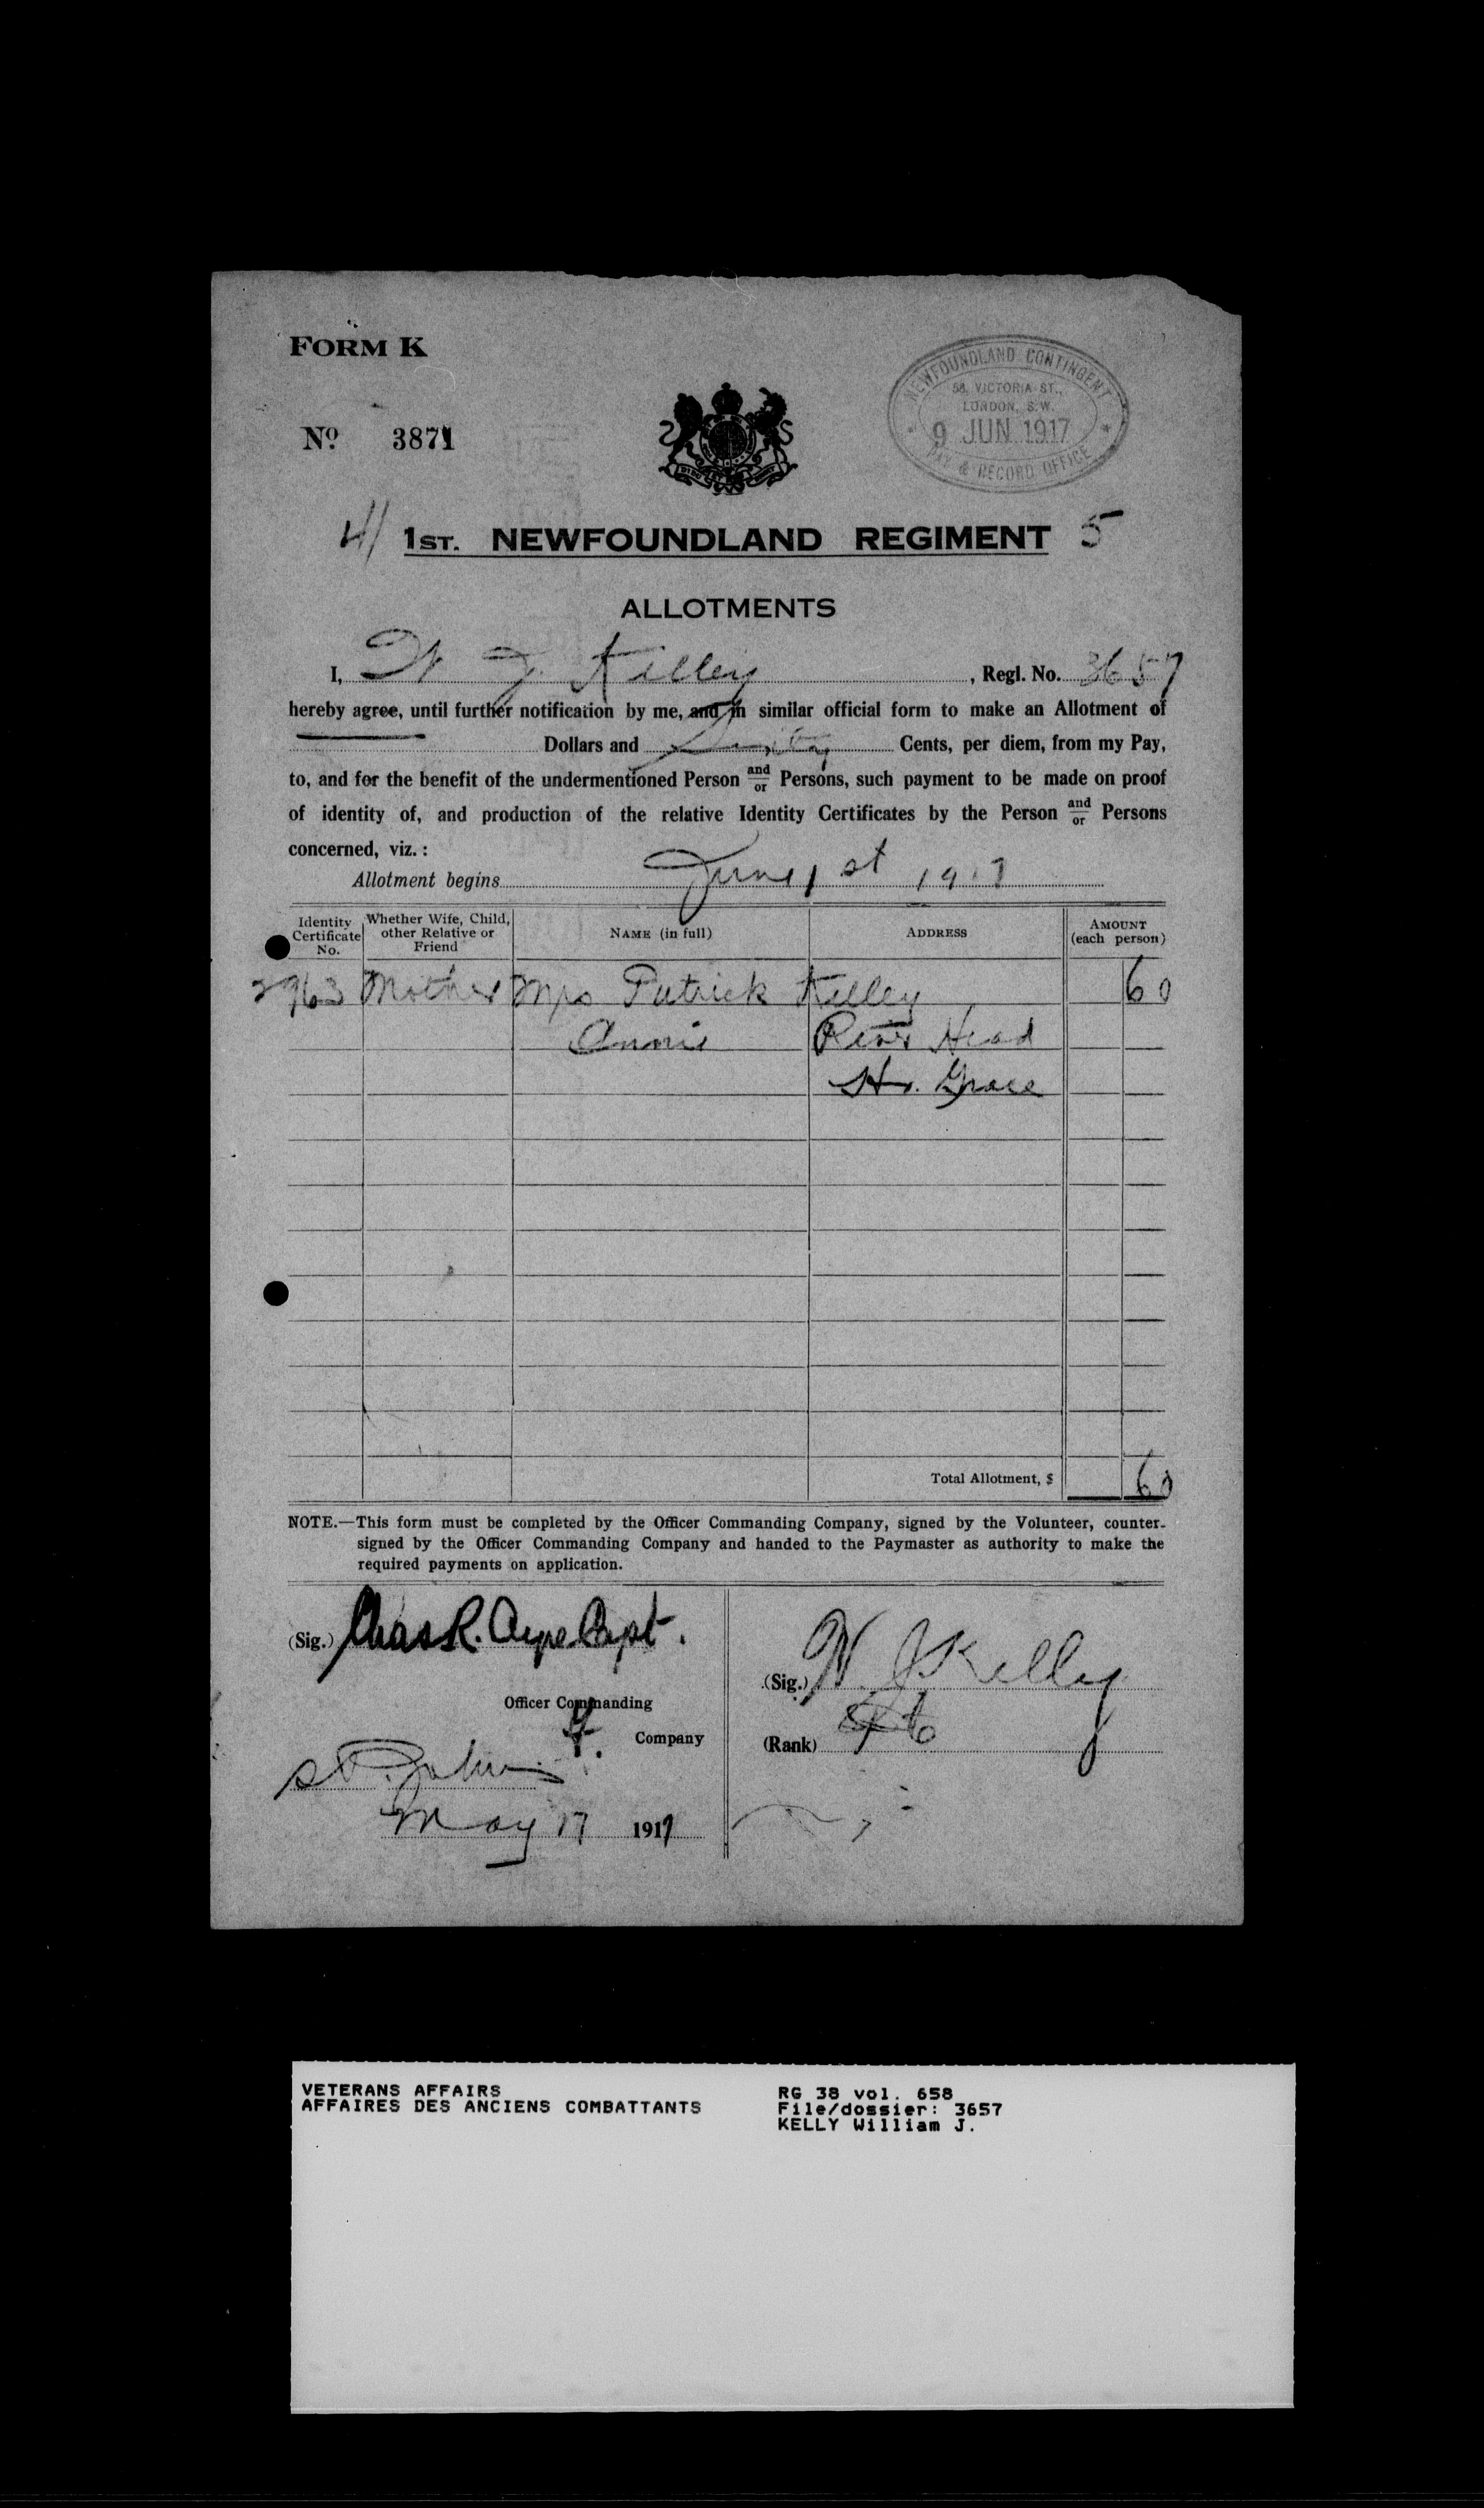 FORM K
NEWFOUNDLAND CONTINGENT
58, VICTORIA ST.,
LONDON, S.W.
9 JUN 1917
PAY & RECORD OFFICE
No 3871
4/ 1ST. NEWFOUNDLAND REGIMENT 5
ALLOTMENTS
I, W J Kelley, Regl. No. 3657
hereby agree, until further notification by me, and in similar official form to make an Allotment of
Dollars and Sixty Cents, per diem, from my Pay,
to, and for the benefit of the undermentioned Person and/or Persons, such payment to be made on proof
of identity of, and production of the relative Identity Certificates by the Person and/or Persons
concerned, viz. :
Allotment begins June 1st 1917
Identity Certificate No. Whether Wife, Child, other Relative or Friend NAME (in full) ADDRESS AMOUNT (each person)
2963 Mother Mrs Patrick Kelley 60
Annie River Head
Hr. Grace
Total Allotment, $ 60
NOTE.—This form must be completed by the Officer Commanding Company, signed by the Volunteer, counter-
signed by the Officer Commanding Company and handed to the Paymaster as authority to make the
required payments on application.
(Sig.) Chas R. Ayre Capt.
Officer Commanding
F. Company
St. John's
May 17 1917
(Sig.) W. J Kelly
(Rank) Pte
VETERANS AFFAIRS
AFFAIRES DES ANCIENS COMBATTANTS
RG 38 vol. 658
File/dossier: 3657
KELLY William J.